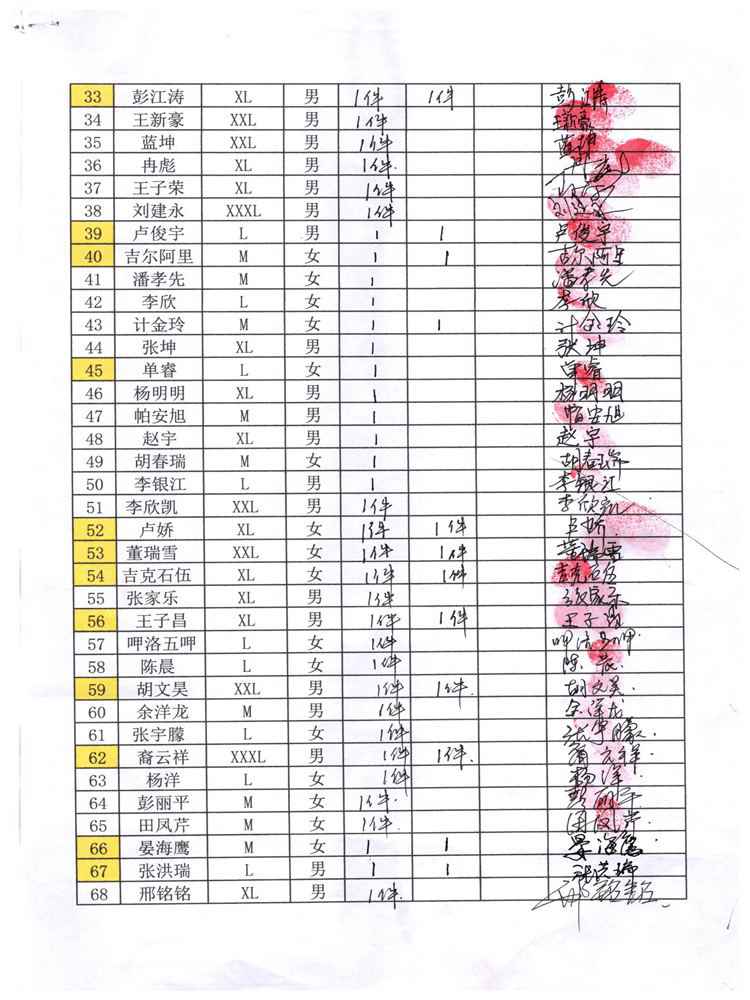 33 彭江涛 XL 男 1件 1件 彭江涛
34 王新豪 XXL 男 1件 王新豪
35 蓝坤 XXL 男 1件 蓝坤
36 冉彪 XL 男 1件.
37 王子荣 XL 男 1件
38 刘建永 XXXL 男 1件 刘建永
39 卢俊宇 L 男 1 1 卢俊宇
40 吉尔阿里 M 女 1 1 吉尔阿里
41 潘孝先 M 男 1 潘孝先
42 李欣 L 女 1 李欣
43 计金玲 M 女 1 1 计金玲
44 张坤 XL 男 1 张坤
45 单睿 L 女 1 单睿
46 杨明明 XL 男 1 杨明明
47 帕安旭 M 男 1 帕安旭
48 赵宇 XL 男 1 赵宇
49 胡春瑞 M 女 1 胡春瑞
50 李银江 L 男 1 李银江
51 李欣凯 XXL 男 1件 李欣凯
52 卢娇 XL 女 1件 1件 卢娇
53 董瑞雪 XXL 女 1件 1件 董瑞雪
54 吉克石伍 XL 女 1件 1件 吉克石伍
55 张家乐 XL 男 1件 张家乐
56 王子昌 XL 男 1件 1件 王子昌
57 呷洛五呷 L 女 1件 呷洛五呷
58 陈晨 L 女 1件 陈晨
59 胡文昊 XXL 男 1件 1件. 胡文昊
60 余洋龙 M 男 1件 余洋龙
61 张宇朦 L 女 1件 张宇朦
62 裔云祥 XXXL 男 1件 1件. 裔云祥
63 杨洋 L 女 1件 杨洋
64 彭丽平 M 女 1件. 彭丽平
65 田凤芹 M 女 1件. 田凤芹
66 晏海鹰 M 女 1 1 晏海鹰
67 张洪瑞 L 男 1 1 张洪瑞
68 邢铭铭 XL 男 1件. 邢铭铭